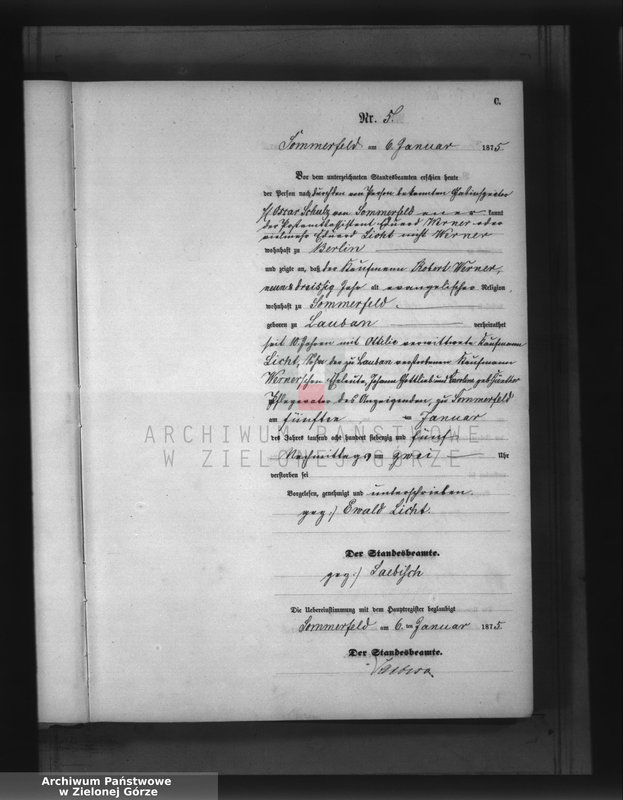 C.
Nr. 5.
Sommerfeld am 6. Januar 1875.
Vor dem unterzeichneten Standesbeamten erschien heute
der Person nach durch den von Person bekannten
Oscar Schulz von Sommerfeld kannt
der Postamtsassistent Eduard Werner oder
vielmehr Eduard Licht nicht Werner
wohnhaft zu Berlin
und zeigte an, daß der Kaufmann Robert Werner,
neun & dreissig Jahr alt evangelischer Religion
wohnhaft zu Sommerfeld
geboren zu Lauban verheirathet
seit 10 Jahren mit Ottilie verwittwete Kaufmann
Licht, Sohn der zu Lauban verstorbenen Kaufmann
Werner'schen Eheleute, Johann Gottlieb und Karoline geb.
Pflegevater des Anzeigenden, zu Sommerfeld
am fünften Januar
des Jahres tausend acht hundert siebenzig und fünf
Nachmittags um zwei Uhr
verstorben sei
Vorgelesen, genehmigt und unterschrieben.
gez:/ Ewald Licht.
Der Standesbeamte.
gez:/ Laebisch
Die Uebereinstimmung mit dem Hauptregister beglaubigt
Sommerfeld am 6. ten Januar 1875.
Der Standesbeamte.
ARCHIWUM PAŃSTWOWE
W ZIELONEJ GÓRZE
Archiwum Państwowe
w Zielonej Górze